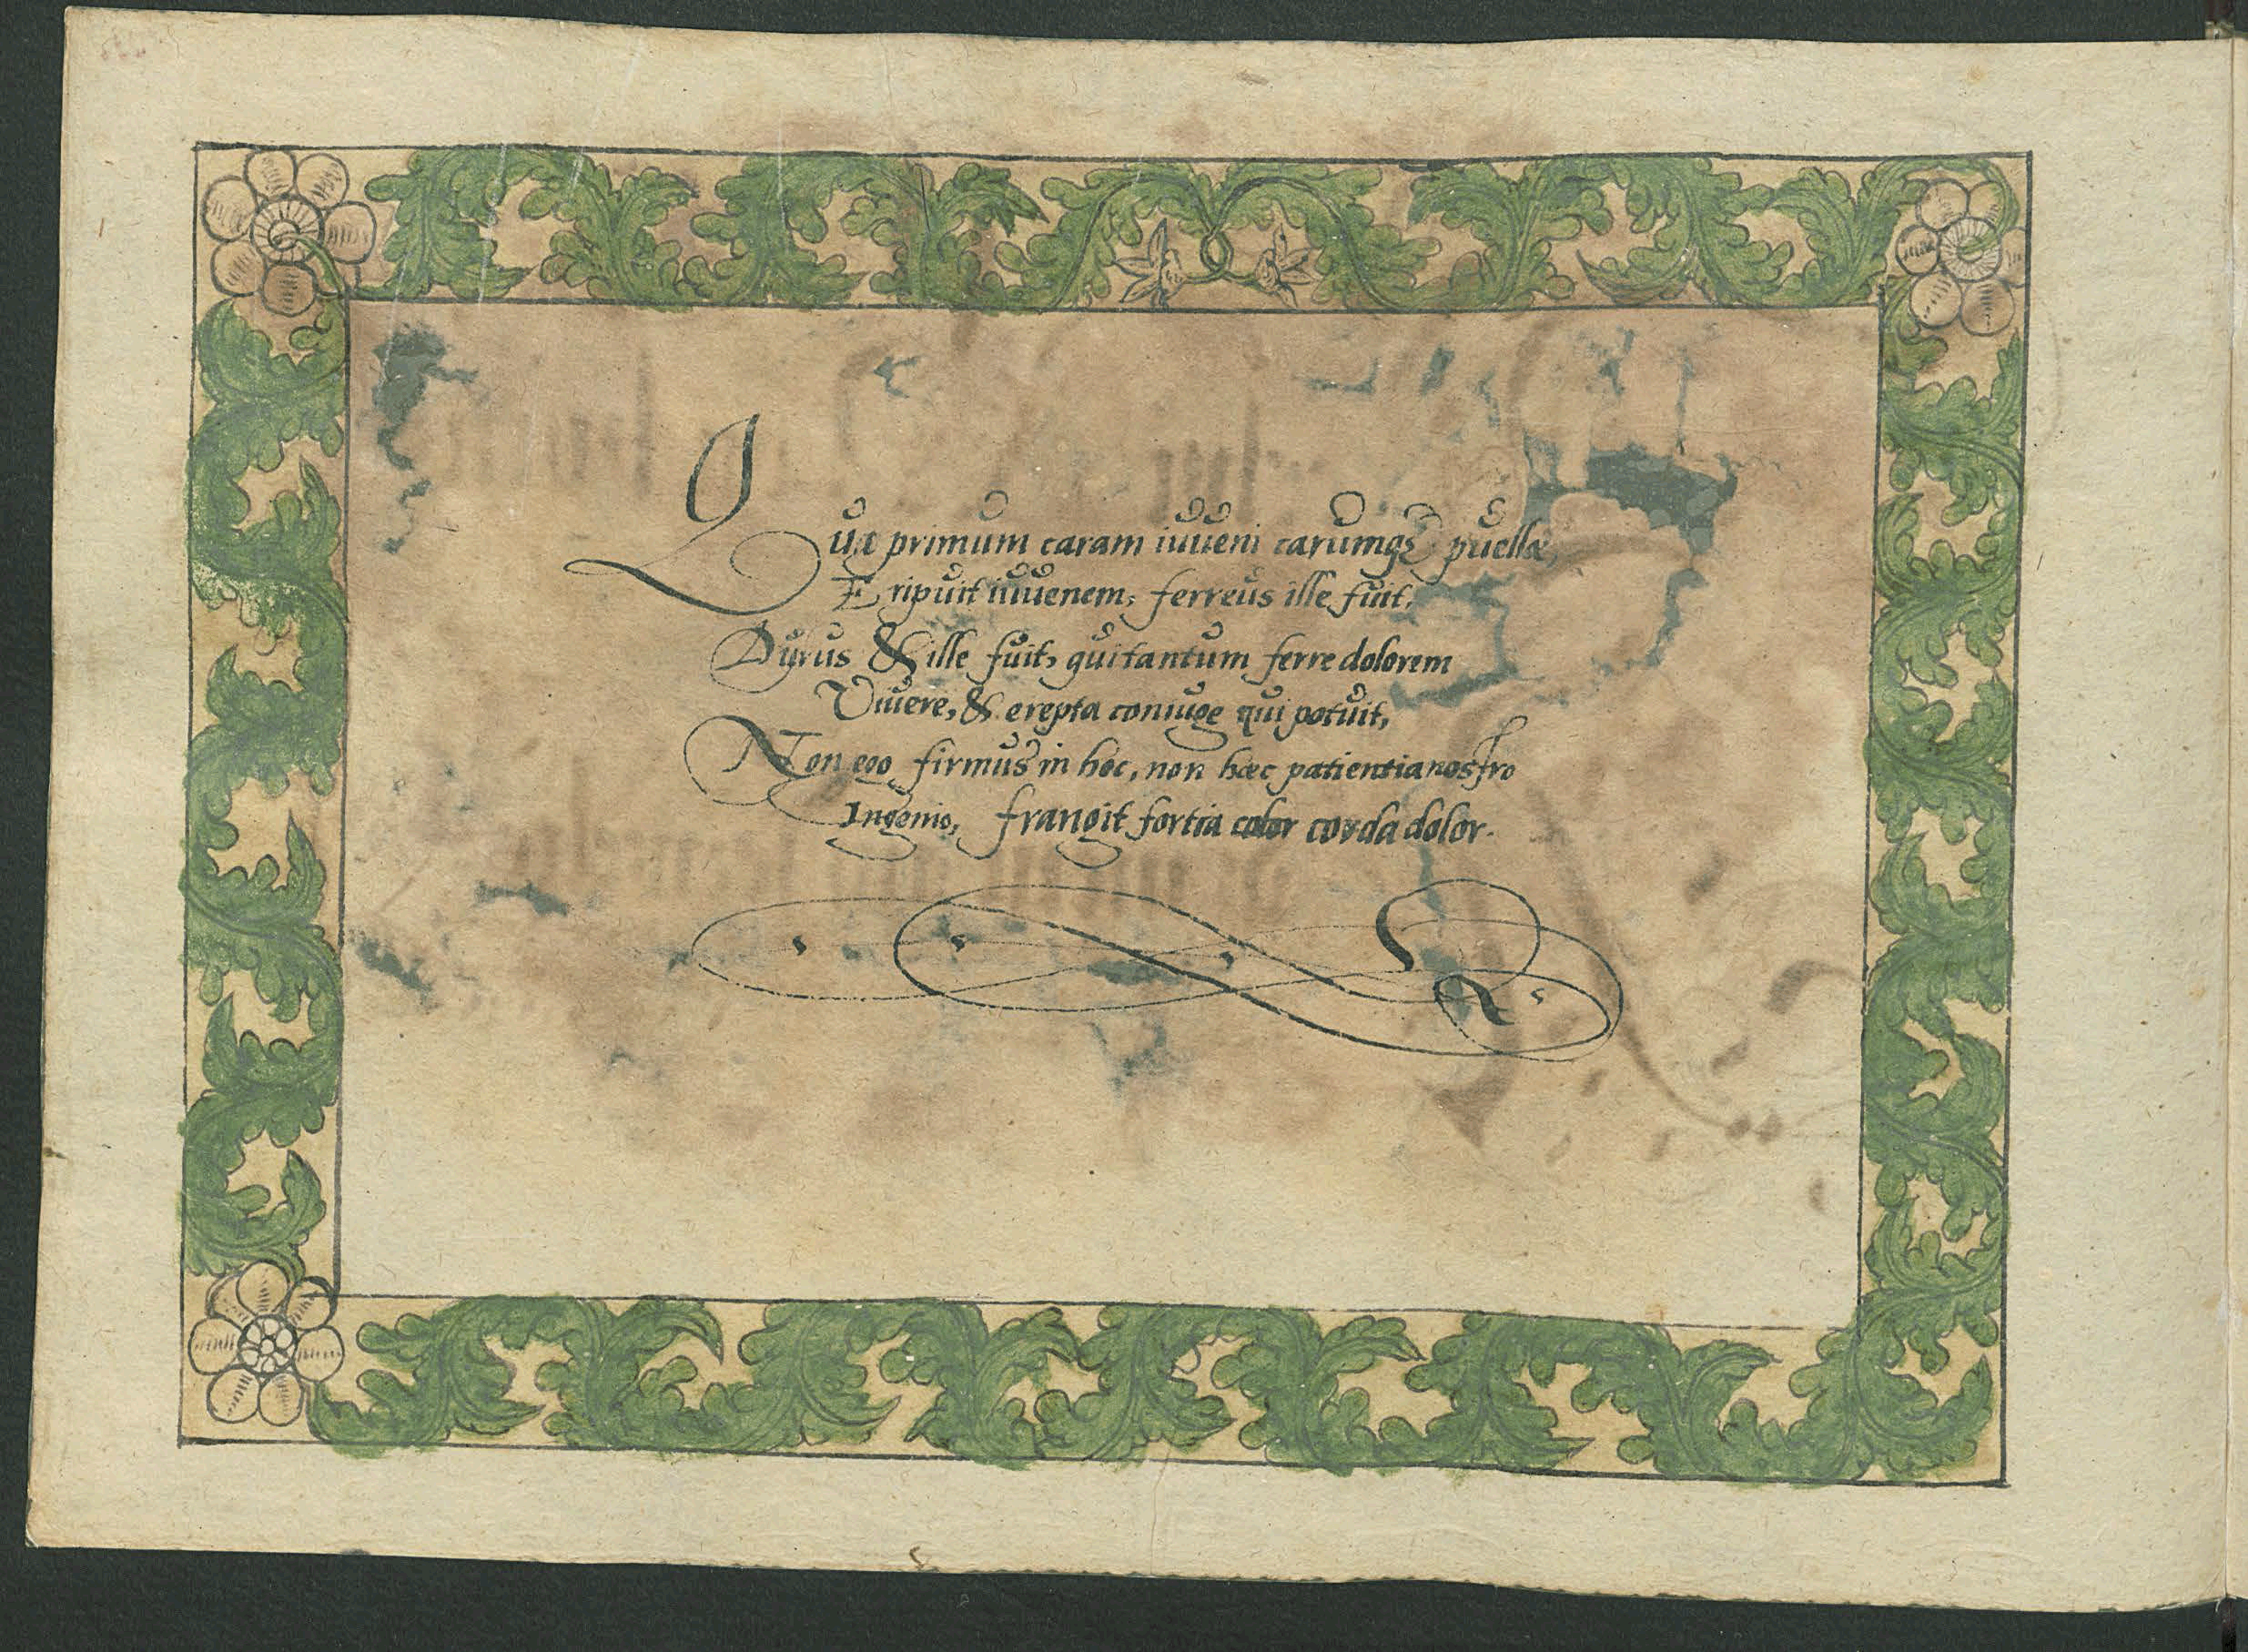 Qua primum caram iuueni carumq3 puellæ,
Eripuit iuuenem, ferreus ille fuit.
Durus & ille fuit, qui tantum ferre dolorem
Viuere, & erepta coniuge qui potuit,
Non ego firmus in hoc, non hæc patientia nostro
Ingenio, frangit fortia color corda dolor.